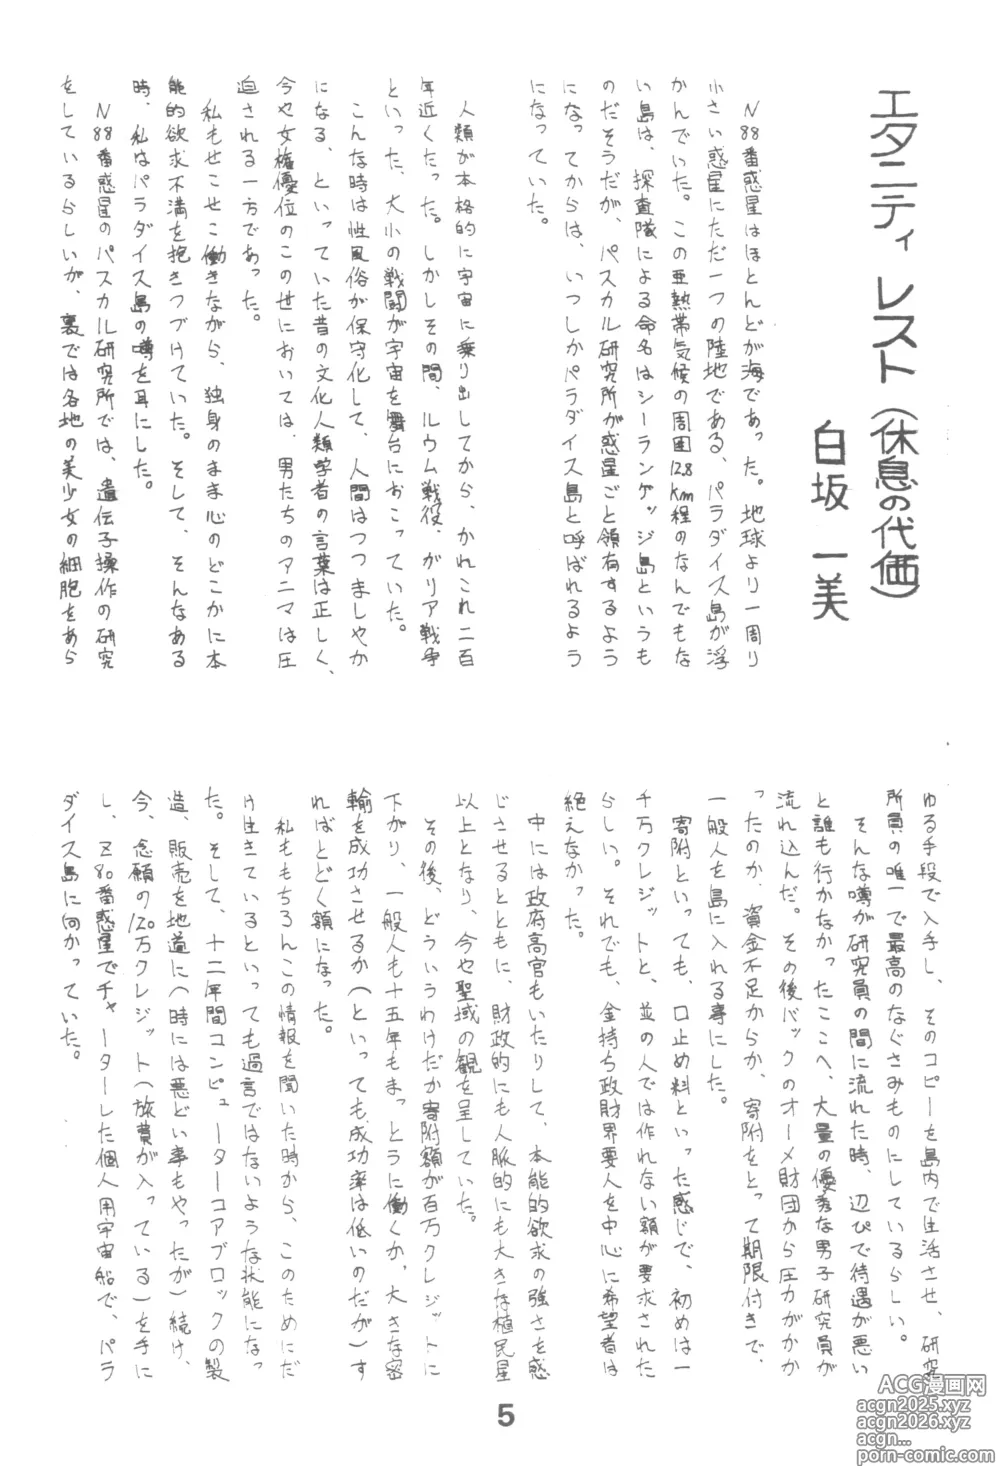 エタニティ レスト（休息の代価）
白坂 一美
N88番惑星はほとんどが海であった。地球より一周り
小さい惑星にただ一つの陸地である、パラダイス島が浮
かんでいた。この亜熱帯気候の周囲12.8km程のなんでもな
い島は、探査隊による命名はシーランゲッジ島というも
のだそうだが、パスカル研究所が惑星ごと領有するよう
になってからは、いつしかパラダイス島と呼ばれるよう
になっていた。
人類が本格的に宇宙に乗り出してから、かれこれ二百
年近くたった。しかしその間、ルウム戦役、ガリア戦争
といった、大小の戦闘が宇宙を舞台におこっていた。
こんな時は性風俗が保守化して、人間はつつましやか
になる、といっていた昔の文化人類学者の言葉は正しく、
今や女権優位のこの世においては、男たちのアニマは圧
迫される一方であった。
私もせこせこ働きながら、独身のまま心のどこかに本
能的欲求不満を抱きつづけていた。そして、そんなある
時、私はパラダイス島の噂を耳にした。
N88番惑星のパスカル研究所では、遺伝子操作の研究
をしているらしいが、裏では各地の美少女の細胞をあら
ゆる手段で入手し、そのコピーを島内で生活させ、研究
所員の唯一で最高のなぐさみものにしているらしい。
そんな噂が研究員の間に流れた時、辺ぴで待遇が悪い
と誰も行かなかったここへ、大量の優秀な男子研究員が
流れ込んだ。その後バックのオーメ財団から圧力がかか
ったのか、資金不足からか、寄附をとって期限付きで、
一般人を島に入れる事にした。
寄附といっても、口止め料といった感じで、初めは一
千万クレジットと、並の人では作れない額が要求された
らしい。それでも、金持ち政財界要人を中心に希望者は
絶えなかった。
中には政府高官もいたりして、本能的欲求の強さを感
じさせるとともに、財政的にも人脈的にも大きな植民星
以上となり、今や聖域の観を呈していた。
その後、どういうわけだか寄附額が百万クレジットに
下がり、一般人も十五年もまっとうに働くか、大きな密
輸を成功させるか（といっても成功率は低いのだが）す
ればとどく額になった。
私ももちろんこの情報を聞いた時から、このためにだ
け生きているといっても過言ではないような状態になっ
た。そして、十二年間コンピューターコアブロックの製
造、販売を地道に（時には悪どい事もやったが）続け、
今、念願の120万クレジット（旅費が入っている）を手に
し、Z80番惑星でチャーターした個人用宇宙船で、パラ
ダイス島に向かっていた。
5
ACG漫画网
acgn2025.xyz
acgn2026.xyz
acgn...
porn-comic.com